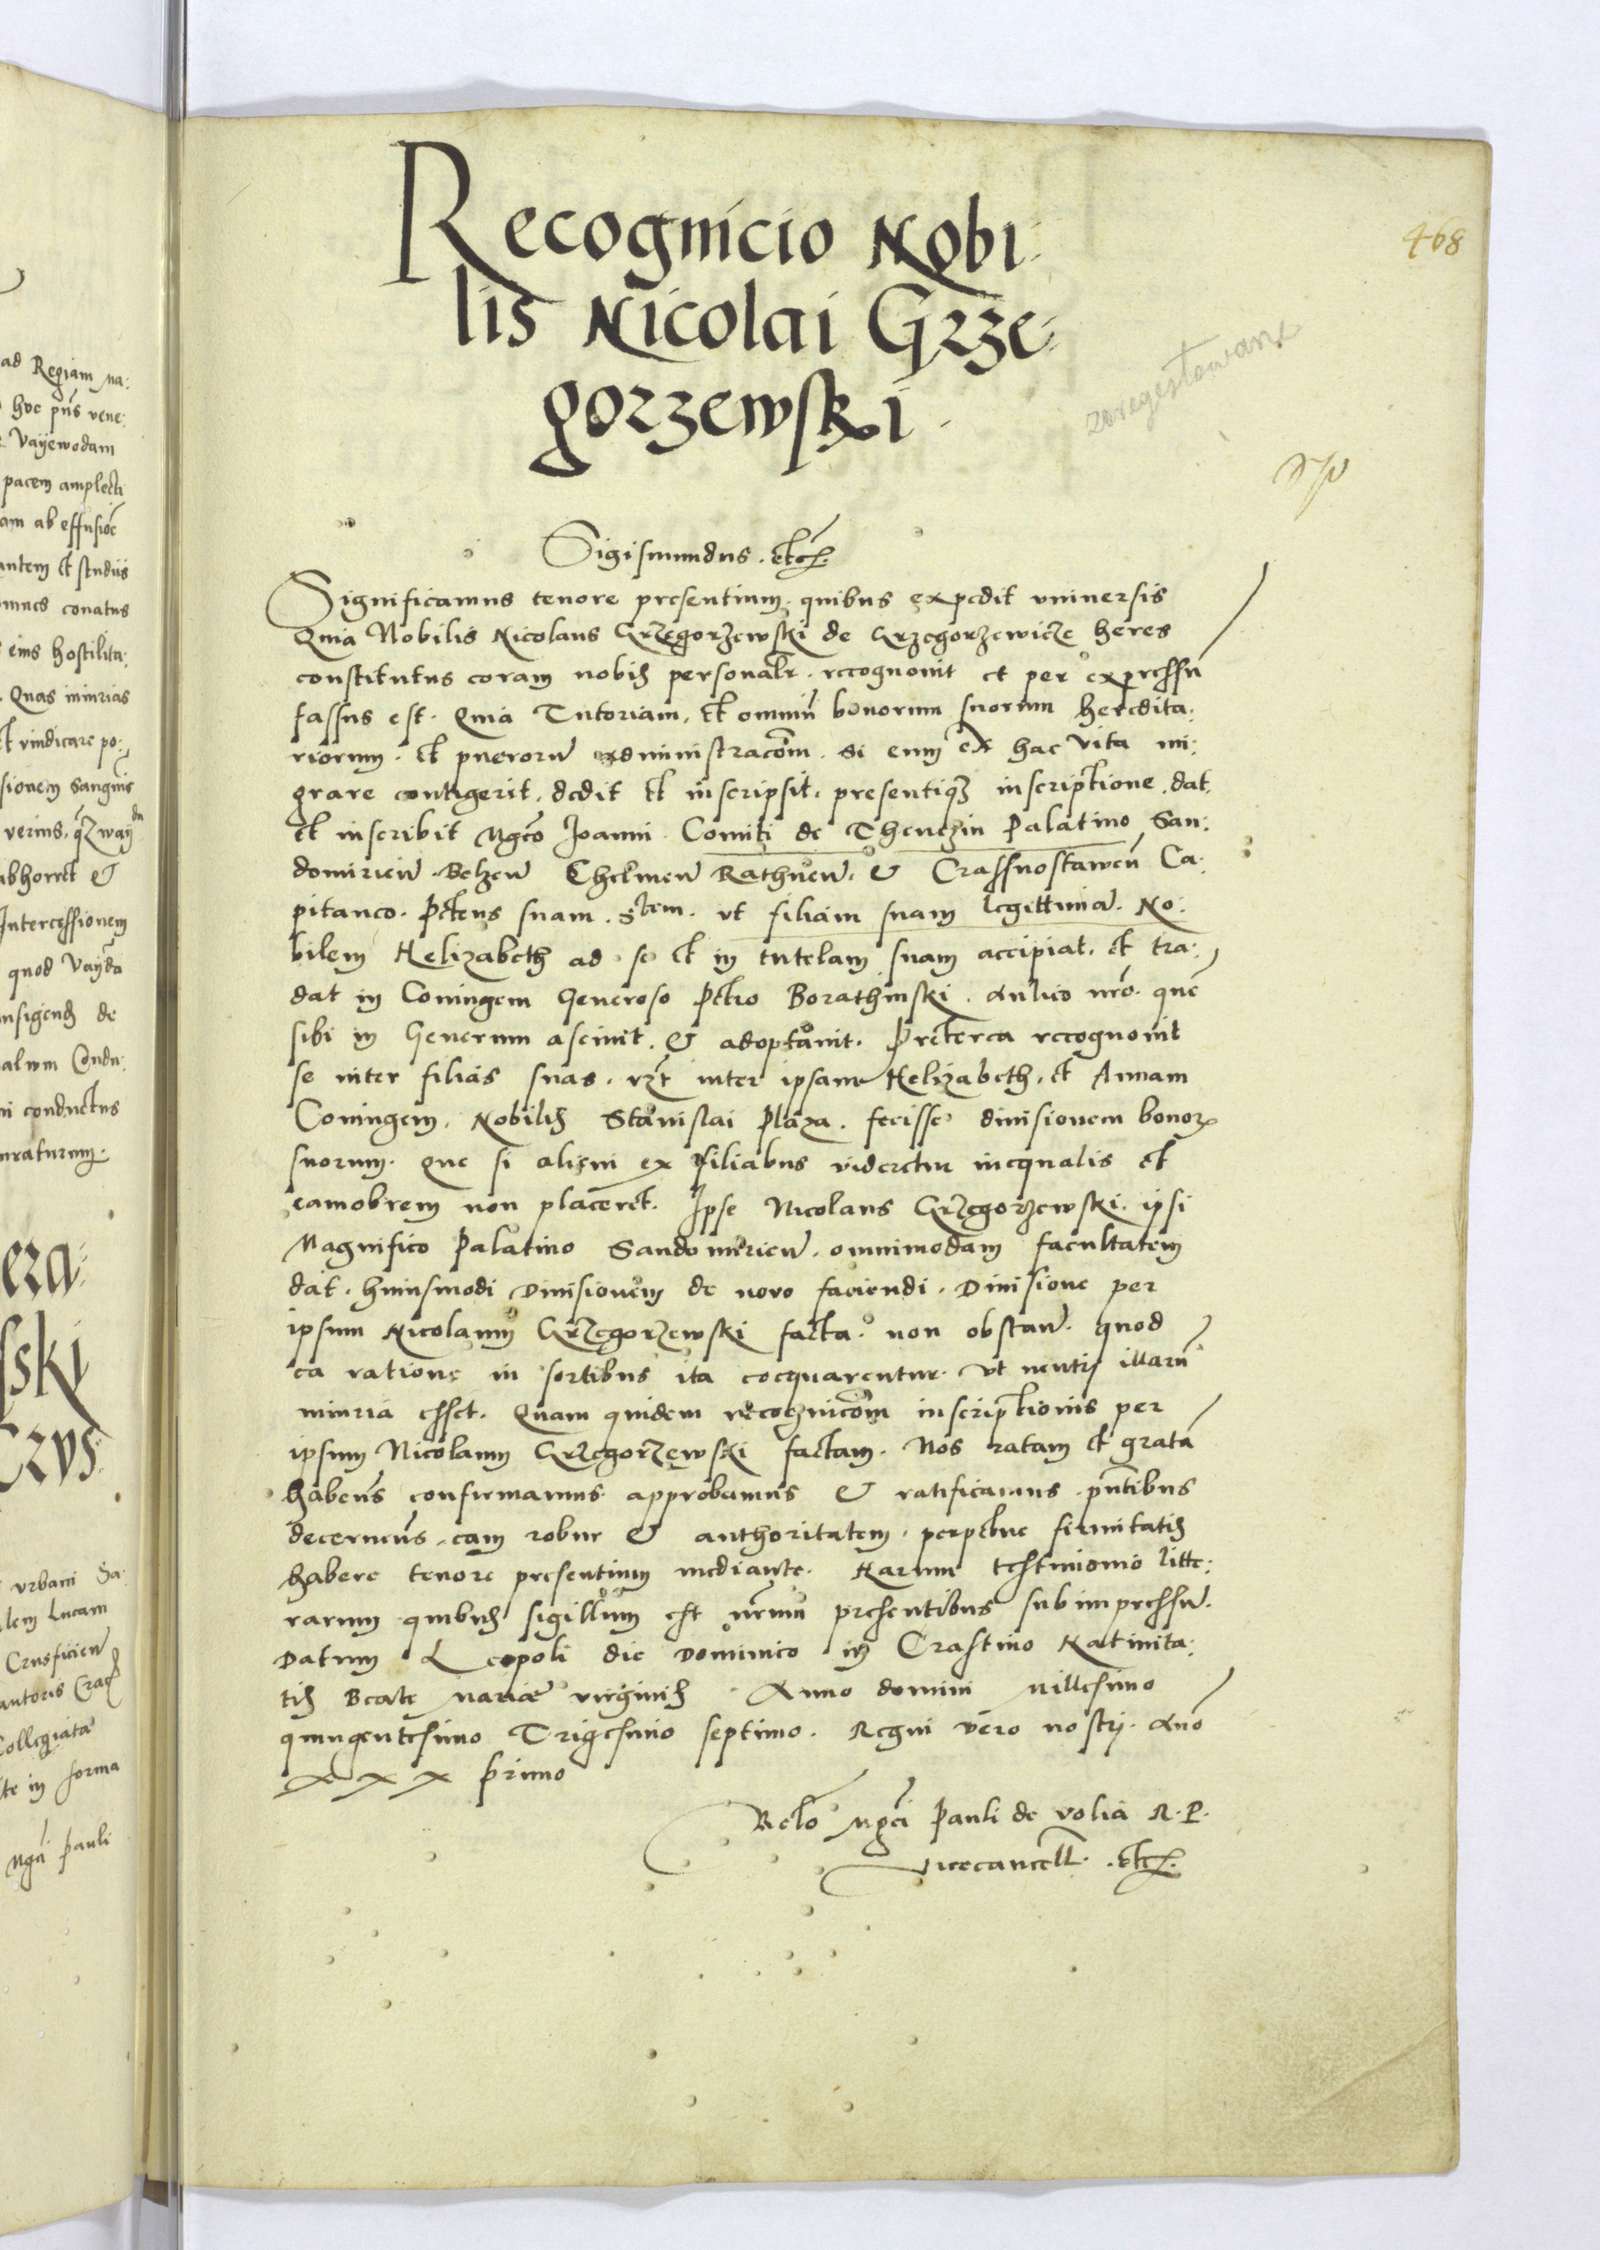 ad Regiam ma:
hoc pñs vene:
Vayewodam
pacem amplecti
am ab effusiõe
antem et studiis
omnes conatus
eius hostilita:
Quas iniurias
et vindicare po:
sionem sanguis
verius, qz way
abhorret &
Intercessionem
quod Vayda
de
alum Condu:
ni conductus
uraturum.
era:
sski
Crus
urbani Sa:
lem Lucam
Crusficien
cantoris Crac
Collegiata
te in forma
Mgci Pauli
468
Recognicio Nobi:
lis Nicolai Grze:
gorzewski.
zaregestowane
Sigismundus. etc.
Significamus tenore presentium. quibus expedit vniuersis
Quia Nobilis Nicolaus Grzegorzewski de Grzegorzewicze heres
constitutus coram nobis personalr. recognouit et per expressu
fassus est. Quia Tutoriam, et omniu bonorum suorum heredita:
riorum. et pueroru administracõem. si eum ex hac vita mi:
grare contigerit, dedit et inscripsit, presentiqz inscriptione dat,
et inscribit Mgco Joanni Comiti de Thenczin Palatino San:
domirien. Belzen Chelmen Rathnen, & Crassnostawen Ca:
pitaneo. Petens suam. Stem. vt filiam suam legittima. No:
bilem Helizabeth ad se et in tutelam suam accipiat, et tra:
dat in Coniugem Generoso Petro Borathinski. Aulico nrõ. que
sibi in Generum asciuit, & adoptauit. Preterea recognouit
se inter filias suas, vzt inter ipsam Helizabeth, et Annam
Coniugem, Nobilis Stanislai Plaza. fecisse diuisionem bonor
suorum. que si alicui ex filiabus videretur inequalis et
eamobrem non placeret. Ipse Nicolaus Grzegorzewski. ipsi
Magnifico Palatino Sandomirien. omnimodam facultatem
dat. huiusmodi Diuisionem de nouo faciendi. Diuisione per
ipsum Nicolaum Grzegorzewski facta. non obstan. quod
ea ratione in sortibus ita coequarentur. vt neutri illaru
iniuria esset. Quam quidem recognicõem inscriptionis per
ipsum Nicolaum Grzegorzewski factam. Nos ratam et grata
habens confirmamus approbamus & ratificamus. pntibus
decernens, eam robur & authoritatem, perpetue firmitatis
habere tenore presentium mediante. Harum testimonio litte:
rarum quibus sigillum est nrmu presentibus subimpressu.
Datum Leopoli die Dominico in Crastino Natiuita:
tis Beate Mariae virginis Anno domini Millesimo
quingentesimo Trigesimo septimo. Regni vero nostri. Ano
XXX primo
Relo Mgci Pauli de Volia R. P.
Vicecancell. etc.